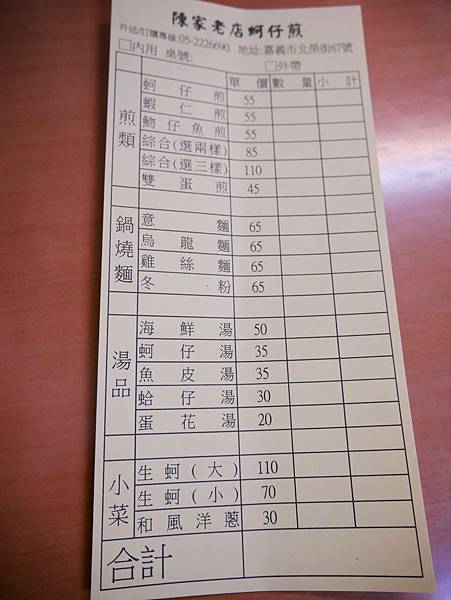 陳家老店蚵仔煎
外送/訂購專線:05-2226690 地址:嘉義市北榮街67號
□內用 桌號: □外帶
單價 數量 小計
煎類
蚵仔煎 55
蝦仁煎 55
魩仔魚煎 55
綜合(選兩樣) 85
綜合(選三樣) 110
雙蛋煎 45
鍋燒麵
意麵 65
烏龍麵 65
雞絲麵 65
冬粉 65
湯品
海鮮湯 50
蚵仔湯 35
魚皮湯 35
蛤仔湯 30
蛋花湯 20
小菜
生蚵(大) 110
生蚵(小) 70
和風洋蔥 30
合計